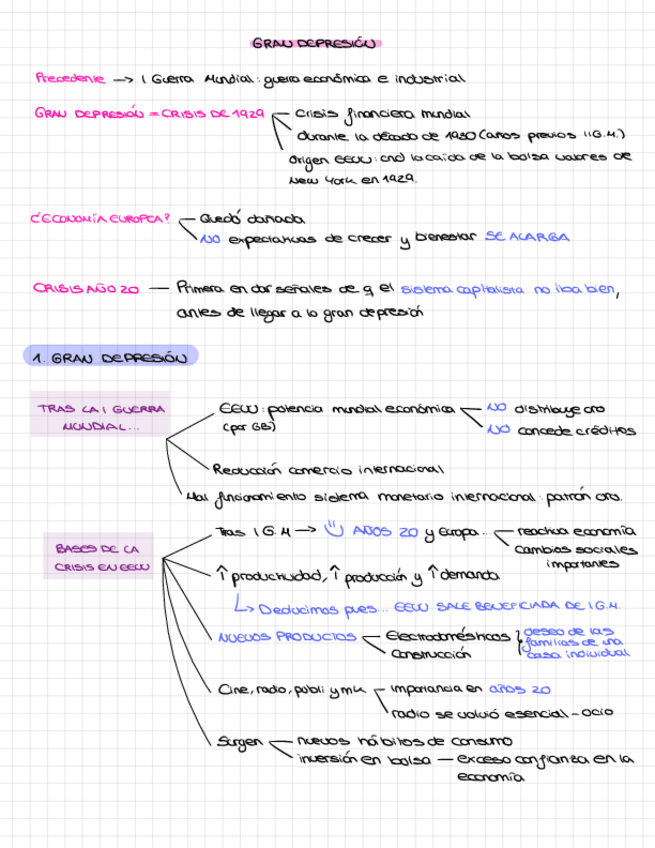 GRAN DEPRESIÓN
Precedente → I Guerra Mundial: guerra económica e industrial
GRAN DEPRESIÓN = CRISIS DE 1929
Crisis financiera mundial
durante la década de 1930 (años previos II G.M.)
origen EEUU: cnd la caída de la bolsa valores de
New York en 1929.
¿ECONOMÍA EUROPEA?
Quedó dañada
NO expectativas de crecer y bienestar SE ALARGA
CRISIS AÑO 20 — Primera en dar señales de q el sistema capitalista no iba bien,
antes de llegar a la gran depresión
1. GRAN DEPRESIÓN
TRAS LA I GUERRA
MUNDIAL...
EEUU: potencia mundial económica
(por GB)
NO distribuye oro
NO concede créditos
Reducción comercio internacional
Mal funcionamiento sistema monetario internacional: patrón oro.
BASES DE LA
CRISIS EN EEUU
Tras I G.M → AÑOS 20 y Europa...
reactiva economía
cambios sociales
importantes
↑ productividad, ↑ producción y ↑ demanda
↳ Deducimos pues... EEUU SALE BENEFICIADA DE I G.M.
NUEVOS PRODUCTOS
Electrodomésticos
Construcción
deseo de las
familias de una
casa individual
Cine, radio, publi y mk
importancia en años 20
radio se volvió esencial - ocio
Surgen
nuevos hábitos de consumo
inversión en bolsa — exceso confianza en la
economía